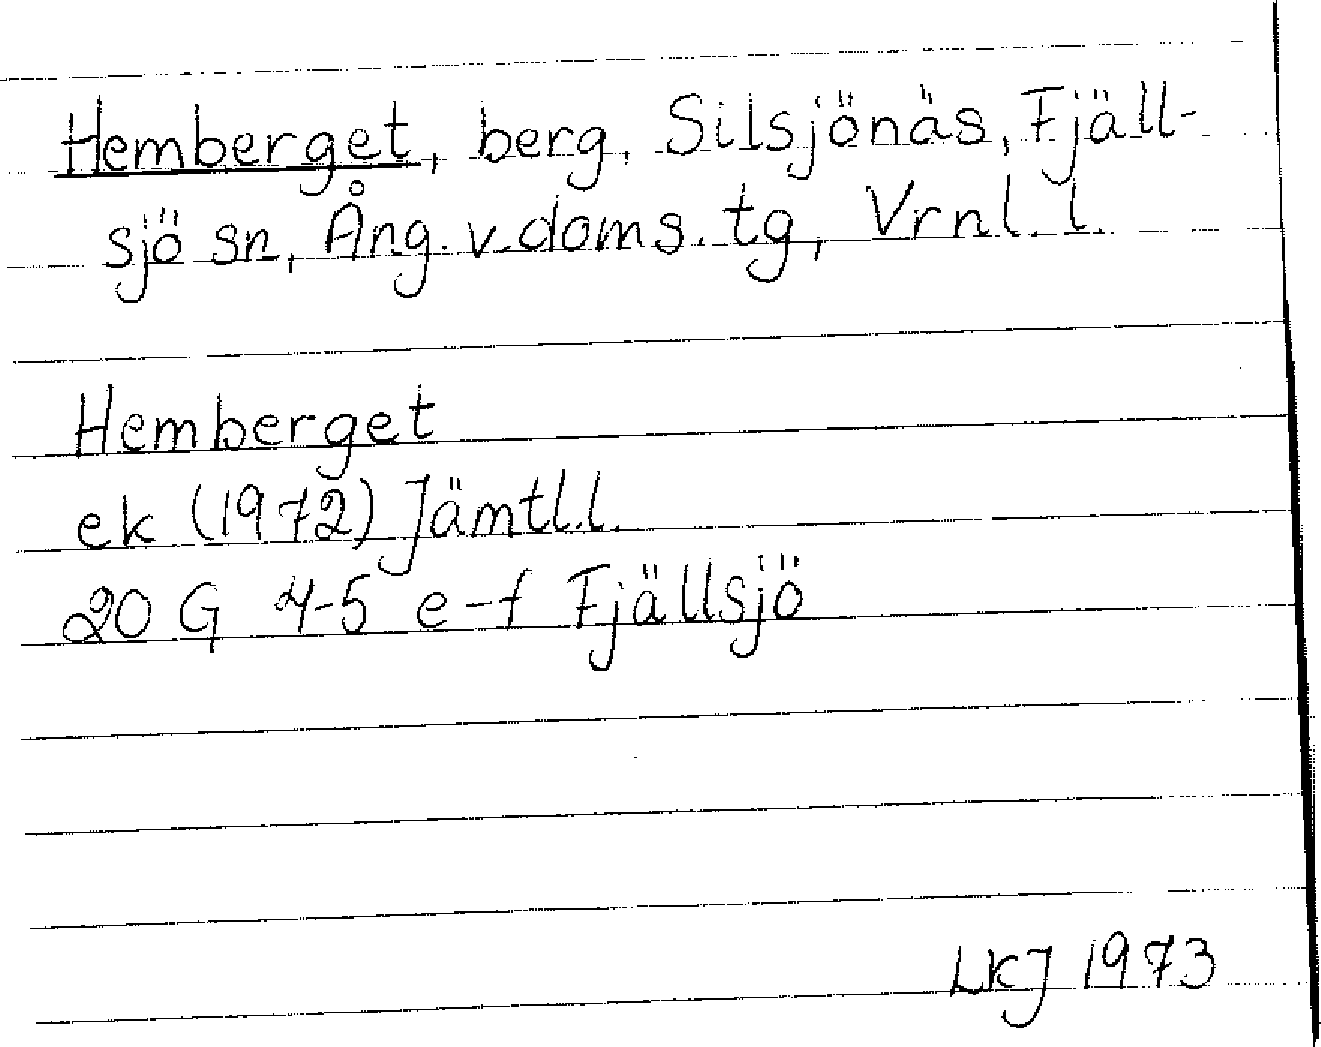 Hemberget, berg, Silsjönäs, Fjäll-
sjö sn, Ång. v. doms. tg, Vrnl. l.
Hemberget
ek (1972) Jämtl.l.
20 G 4-5 e-f Fjällsjö
LKJ 1973